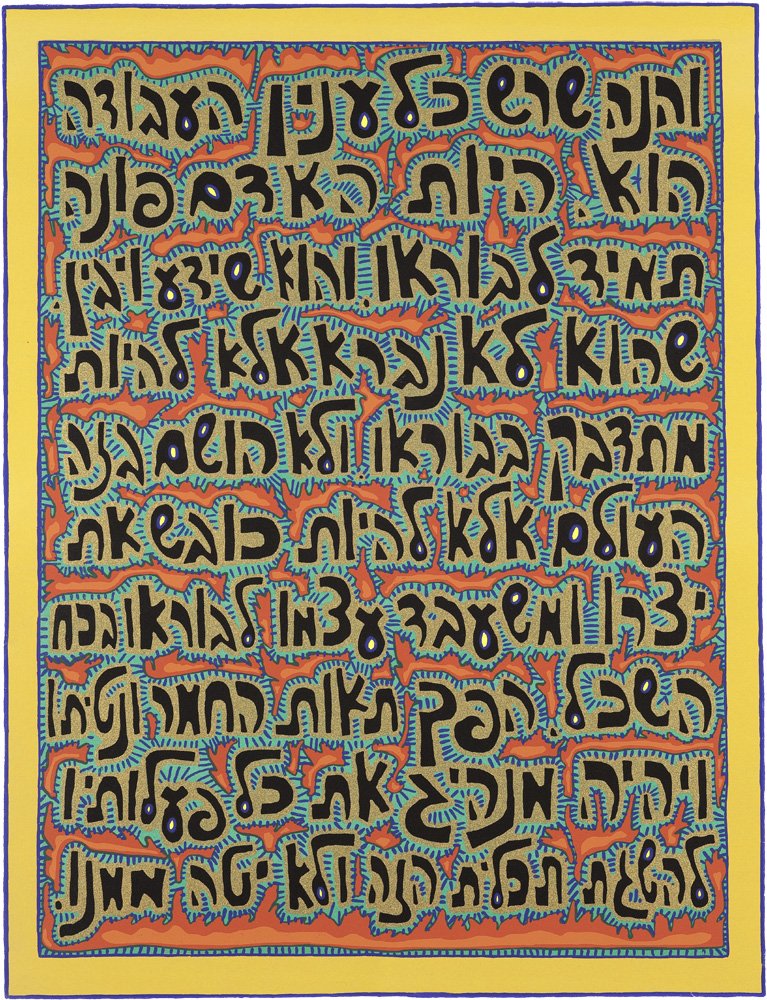 והנה שרש כל ענין העבודה
הוא, היות האדם פונה
תמיד לבוראו, והוא שידע ויבין,
שהוא לא נברא אלא להיות
מתדבק בבוראו, ולא הושם בזה
העולם אלא להיות כובש את
יצרו ומשעבד עצמו לבוראו בכח
השכל, הפך תאות החמר ונטיתו
ויהיה מנהיג את כל פעלותיו
להשגת תכלית הזה ולא יטה ממנו.